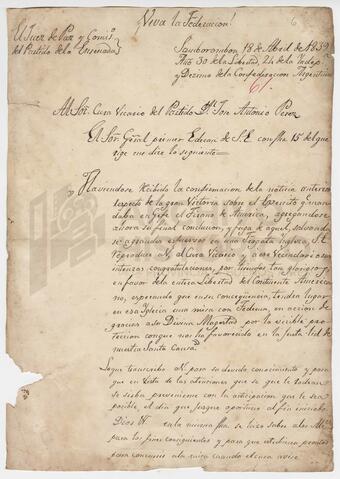 ¡Viva la Federacion!
6
El Juez de Paz y Comis.º
del Partido de la Ensenada
Samborombon 18 de Abril de 1839
Año 30 de la Libertad, 24 de la Indep.ª
y Decimo de la Confederacion Argentina
61
Al Sor. Cura Vicario del Partido D.n Jose Antonio Perez
El Sor. Gral primer Edecan de S.E. con fha 15 del que
rige me dice lo siguiente
Haviendose recibido la confirmacion de la noticia anterior
respecto de la gran Victoria sobre el Exercito q.e man
daba en Gefe el Tirano de America, agregandose
ahora su final conclucion, y fuga de aquel, salvando
se a grandes esfuerzos en una Fragata Inglesa, S.E.
reproduce a V. al Cura Vicario y a ese Vecindario sus
intensas congratulaciones, por triunfos tan gloriosos y
en favor de la entera Libertad del Continente America
no, esperando que en su concequencia, tendra lugar
en esa Iglesia una misa con Tedeum, en accion de
gracias ala Divina Magestad por la visible pro
teccion conque nos ha favorecido en la justa lid de
nuestra Santa Causa.
Loque transcribo a V. para su devido conocimiento y para
que en vista de las atenciones que se le
se sirba prevenirme con la anticipacion que le sea
posible, el dia que jusgue oportuno al fin
Dios
para los fines consiguientes y para que esten prontos
para concurrir ala misa cuando el cura avise